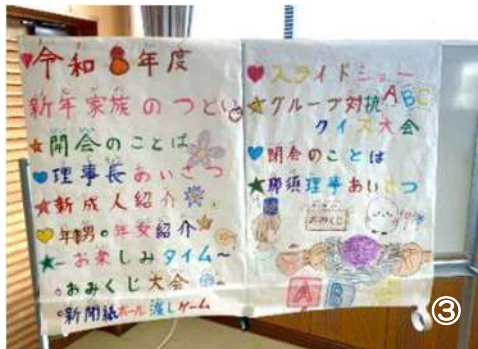 令和8年度
新年家族のつどい
★開会のことば
♥理事長あいさつ
★新成人紹介
♥年男。年女紹介
★~お楽しみタイム~
。おみくじ大会
。新聞紙ボール渡しゲーム
♥スライドショー
★グループ対抗ABC
クイズ大会
♥閉会のことば
★那須理事あいさつ
おみくじ
A
B
③